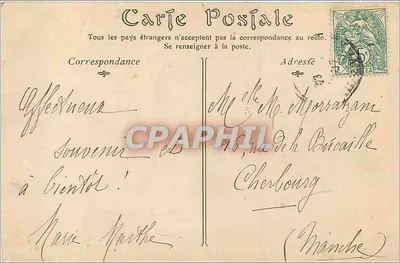 Carte Postale
Tous les pays étrangers n'acceptent pas la correspondance au recto.
Se renseigner à la poste.
Correspondance
Adresse
Affectueux
souvenir et
à bientôt !
Marie Marthe
CPAPHIL
Melle M.
rue de la Bucaille
Cherbourg
(Manche)